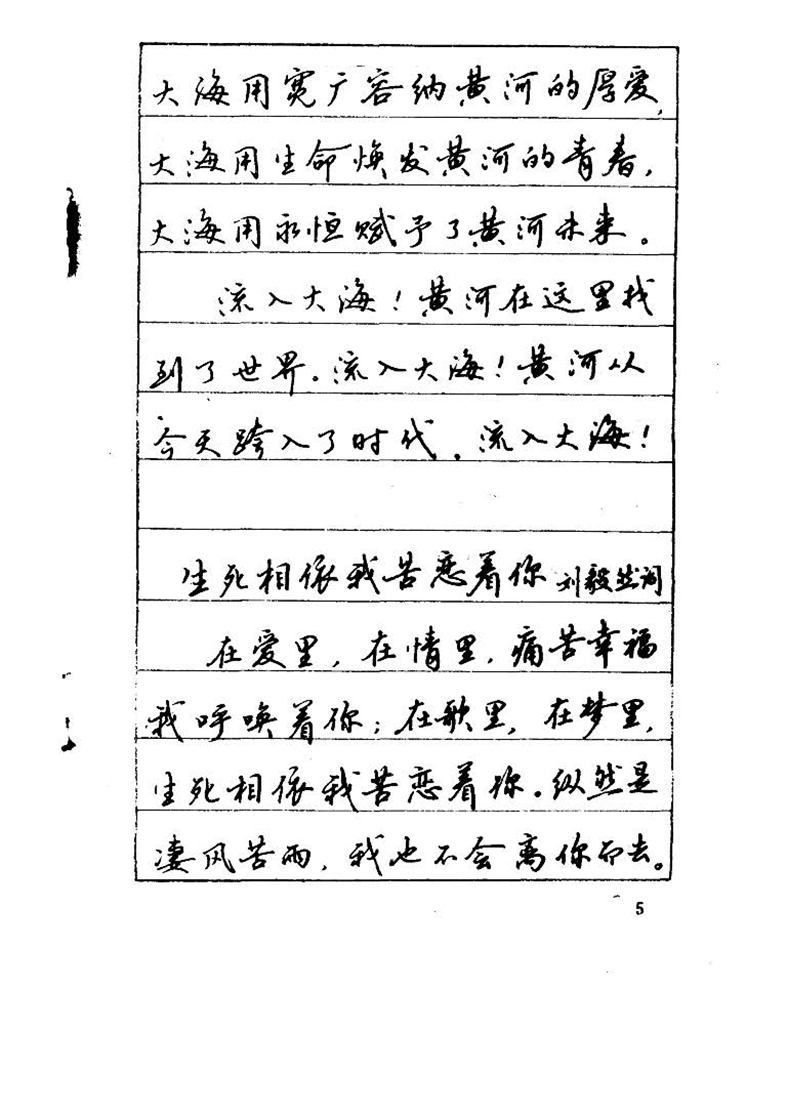 大海用宽广容纳黄河的厚爱，
大海用生命焕发黄河的青春，
大海用永恒赋予了黄河未来。
流入大海！黄河在这里找
到了世界。流入大海！黄河从
今天跨入了时代。流入大海！
生死相依我苦恋着你 刘毅然词
在爱里，在情里，痛苦幸福
我呼唤着你；在歌里，在梦里，
生死相依我苦恋着你。纵然是
凄风苦雨，我也不会离你而去。
5